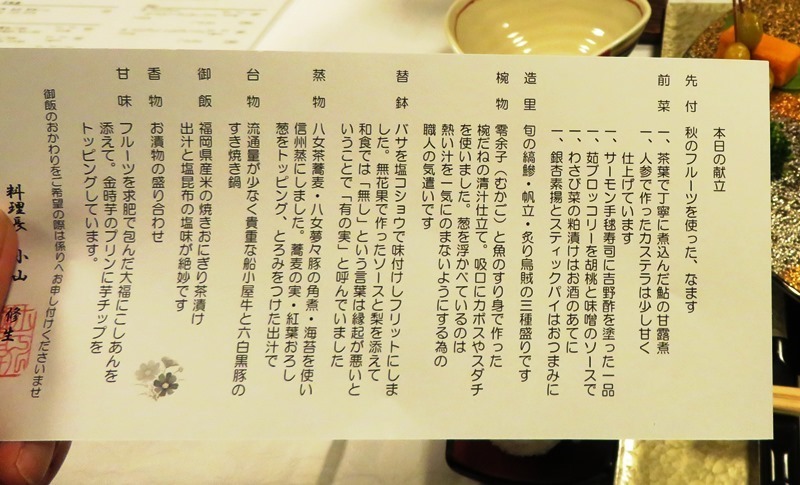 本日の献立
先付 秋のフルーツを使った、なます
前菜 一、茶葉で丁寧に煮込んだ鮎の甘露煮
一、人参で作ったカステラは少し甘く
仕上げています
一、サーモン手毬寿司に吉野酢を塗った一品
一、茹ブロッコリーを胡桃と味噌のソースで
一、わさび菜の粕漬けはお酒のあてに
一、銀杏素揚とスティックパイはおつまみに
造里 旬の縞鰺・帆立・炙り烏賊の三種盛りです
椀物 零余子（むかご）と魚のすり身で作った
椀だねの清汁仕立て。吸口にカボスやスダチ
を使いました。葱を浮かべているのは
熱い汁を一気にのまないようにする為の
職人の気遣いです
替鉢 バサを塩コショウで味付けしフリットにしま
した。無花果で作ったソースと梨を添えて
和食では「無し」という言葉は縁起が悪いと
いうことで「有の実」と呼んでいました
蒸物 八女茶蕎麦・八女夢々豚の角煮・海苔を使い
信州蒸にしました。蕎麦の実・紅葉おろし
葱をトッピング、とろみをつけた出汁で
台物 流通量が少なく貴重な船小屋牛と六白黒豚の
すき焼き鍋
御飯 福岡県産米の焼きおにぎり茶漬け
出汁と塩昆布の塩味が絶妙です
香物 お漬物の盛り合わせ
甘味 フルーツを求肥で包んだ大福にこしあんを
添えて。金時芋のプリンに芋チップを
トッピングしています。
御飯のおかわりをご希望の際は係りへお申し付けくださいませ
料理長 小山 修生